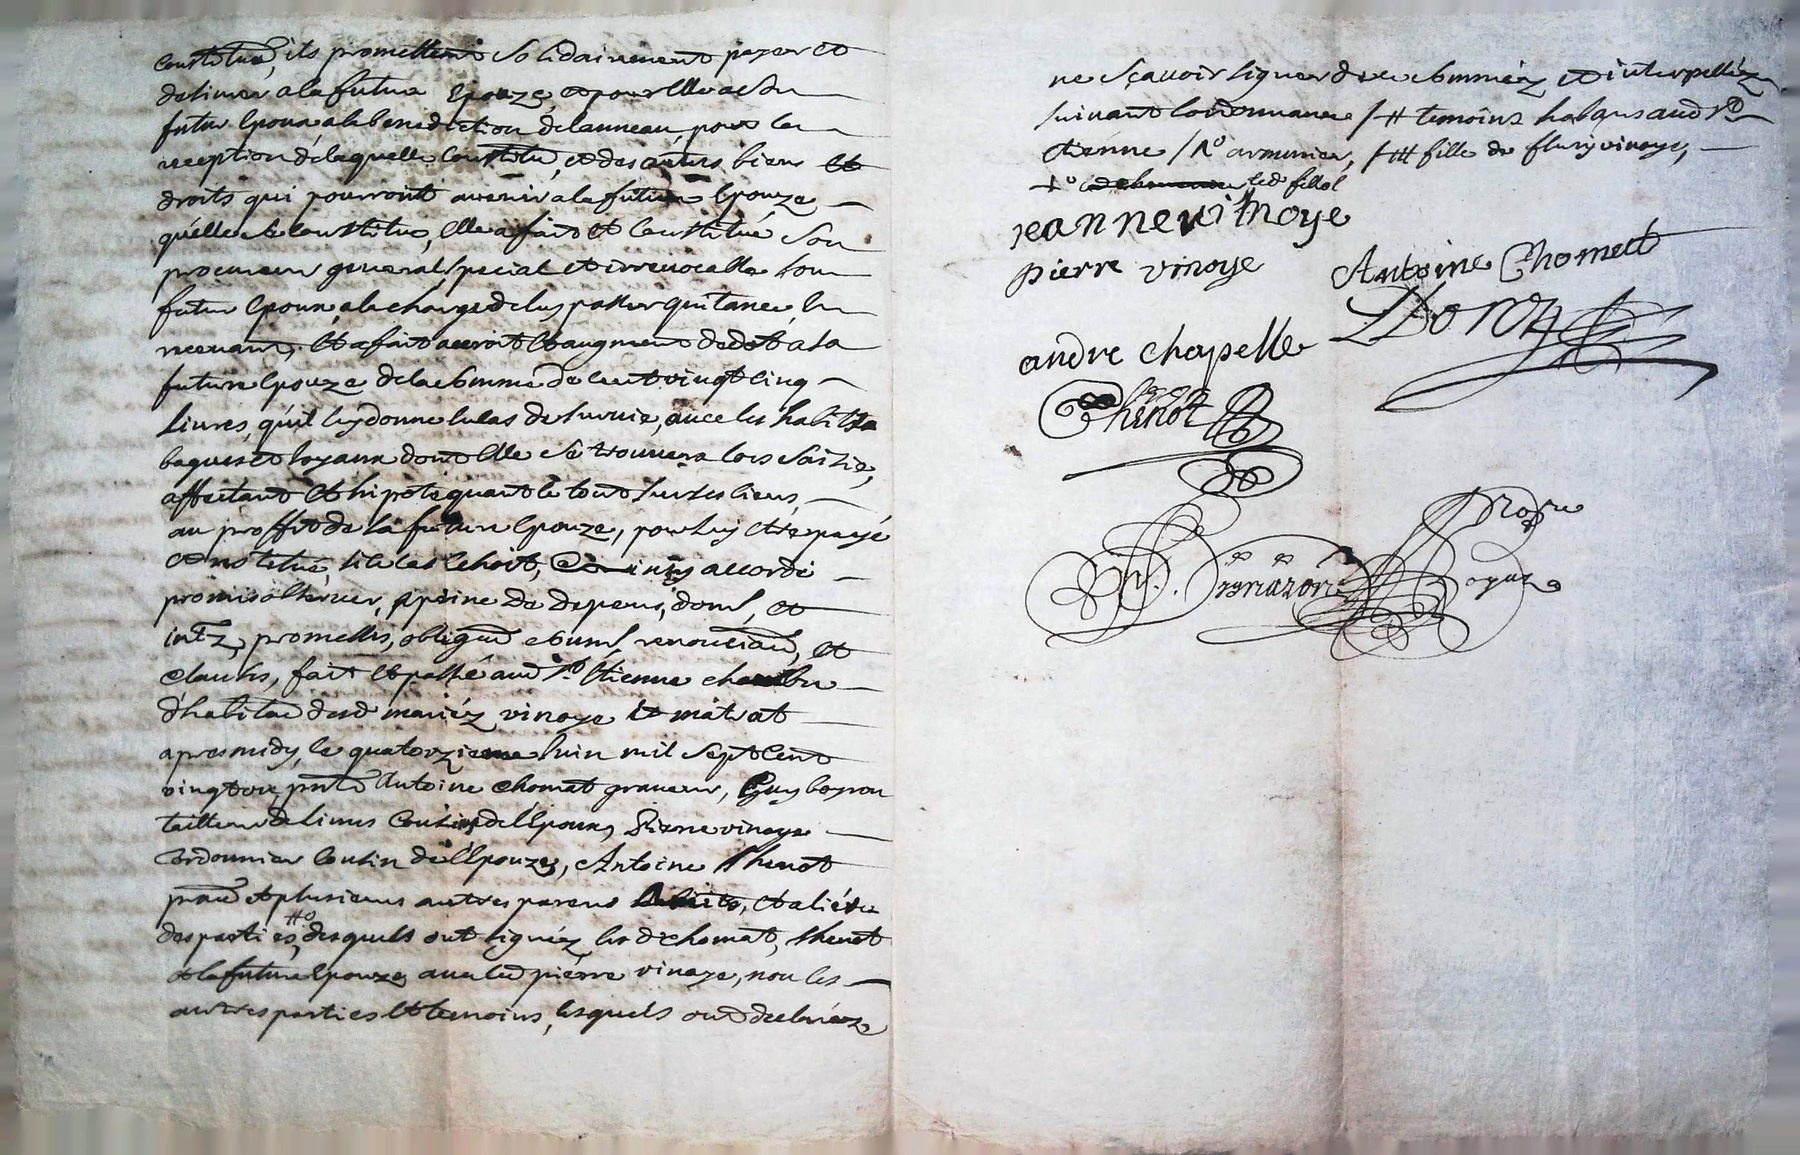 constitué, ils promettent solidairement payer et
delivrer a la future Epouze, et pour elle a son
futur Epoux a la benediction de lanneau, pour la
reception de laquelle constitu, et des autres biens et
droits qui pourront avenir a la future Epouze
qu'elle se constitue, elle a fait et constitué son
procureur general special et irrevocable son
futur Epoux, a la charge de luy passer quitance, en
recevant, et a fait accroit et augment de dot a la
future Epouze de la somme de cent vingt cinq
livres, qu'il luy donne en cas de survie, avec les habits
bagues et joyaux dont elle se trouvera lors saisie,
affectant et hipotequant le tout sur ses biens,
au proffit de la future Epouze, pour luy etre payé
et restitué, si le cas echoit, accordé
promis observer, a peine de depens, dom, et
intz, promettes, obligeant renonciand, et
clauses, fait et passé aud St. Etienne
d'habita desd mariéz vinoye et matrat
apres midy, le quatorzieme Juin mil sept cent
vingt pnts Antoine Chomat graveur, Guy boyron
tailleur de limes Cousin de l'Epoux, Pierre vinoye
Cordonnier Cousin de l'Epouze, Antoine Thenot
prat et plusieurs autres parens et aliés
des parties, desquels ont signéz les d chomat, thenot
et la future Epouze, avec led pierre vinoye, non les
autres parties et temoins, lesquels ont declaréz
ne sçavoir signer de ce sommméz et interpelléz
suivant lordonnance /# temoins habans aud St
etienne /1º armurier, /### fille de fleury vinoye,
led fillol
jeanne vinoye
pierre vinoye
Antoine Chomett
andre chapelle
Thenot